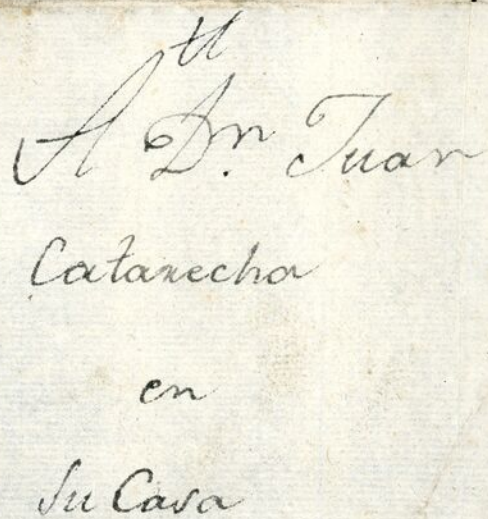 A Dn. Juan
Catarecha
en
su Casa